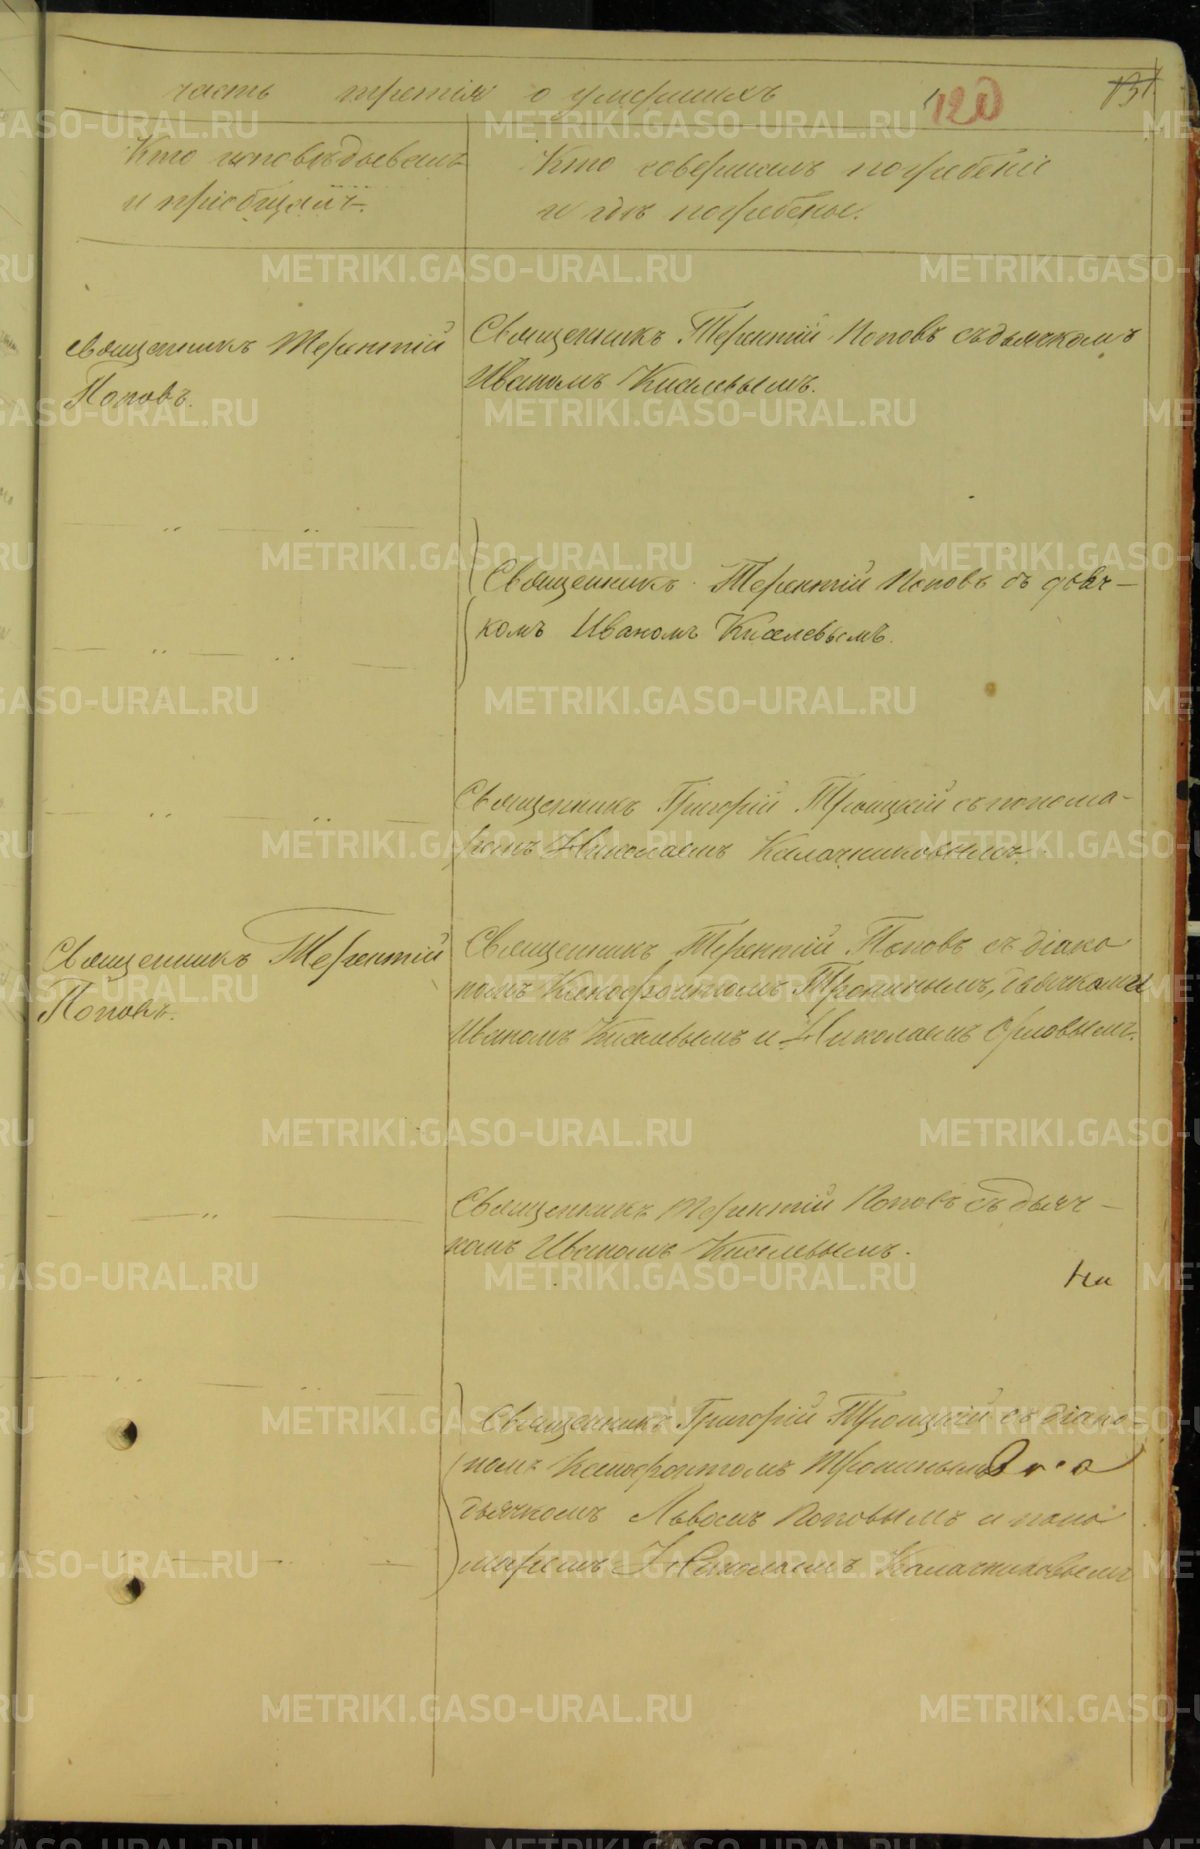 часть третія о умершихъ 120 131
Кто исповѣдывалъ
и пріобщалъ.
Кто совершалъ погребеніе
и гдѣ погребены.
Священникъ Терентій
Поповъ.
Священникъ Терентій Поповъ съ дьячкомъ
Иваномъ Киселевымъ.
Священникъ Терентій Поповъ съ дьяч-
комъ Иваномъ Киселевымъ.
Священникъ Григорій Троицкій съ понома-
ремъ Николаемъ Калачниковымъ.
Священникъ Терентій
Поповъ.
Священникъ Терентій Поповъ съ діако
номъ Ксенофонтомъ Трониным, дьячками
Иваномъ Киселевымъ и Николаемъ Орловымъ.
Священникъ Терентій Поповъ съ дьяч-
комъ Иваномъ Киселевымъ.
На
Священникъ Григорій Троицкій съ діако-
номъ Ксенофонтомъ
дьячкомъ Львомъ Поповымъ и поно
маремъ Николаемъ Калачниковымъ
METRIKI.GASO-URAL.RU